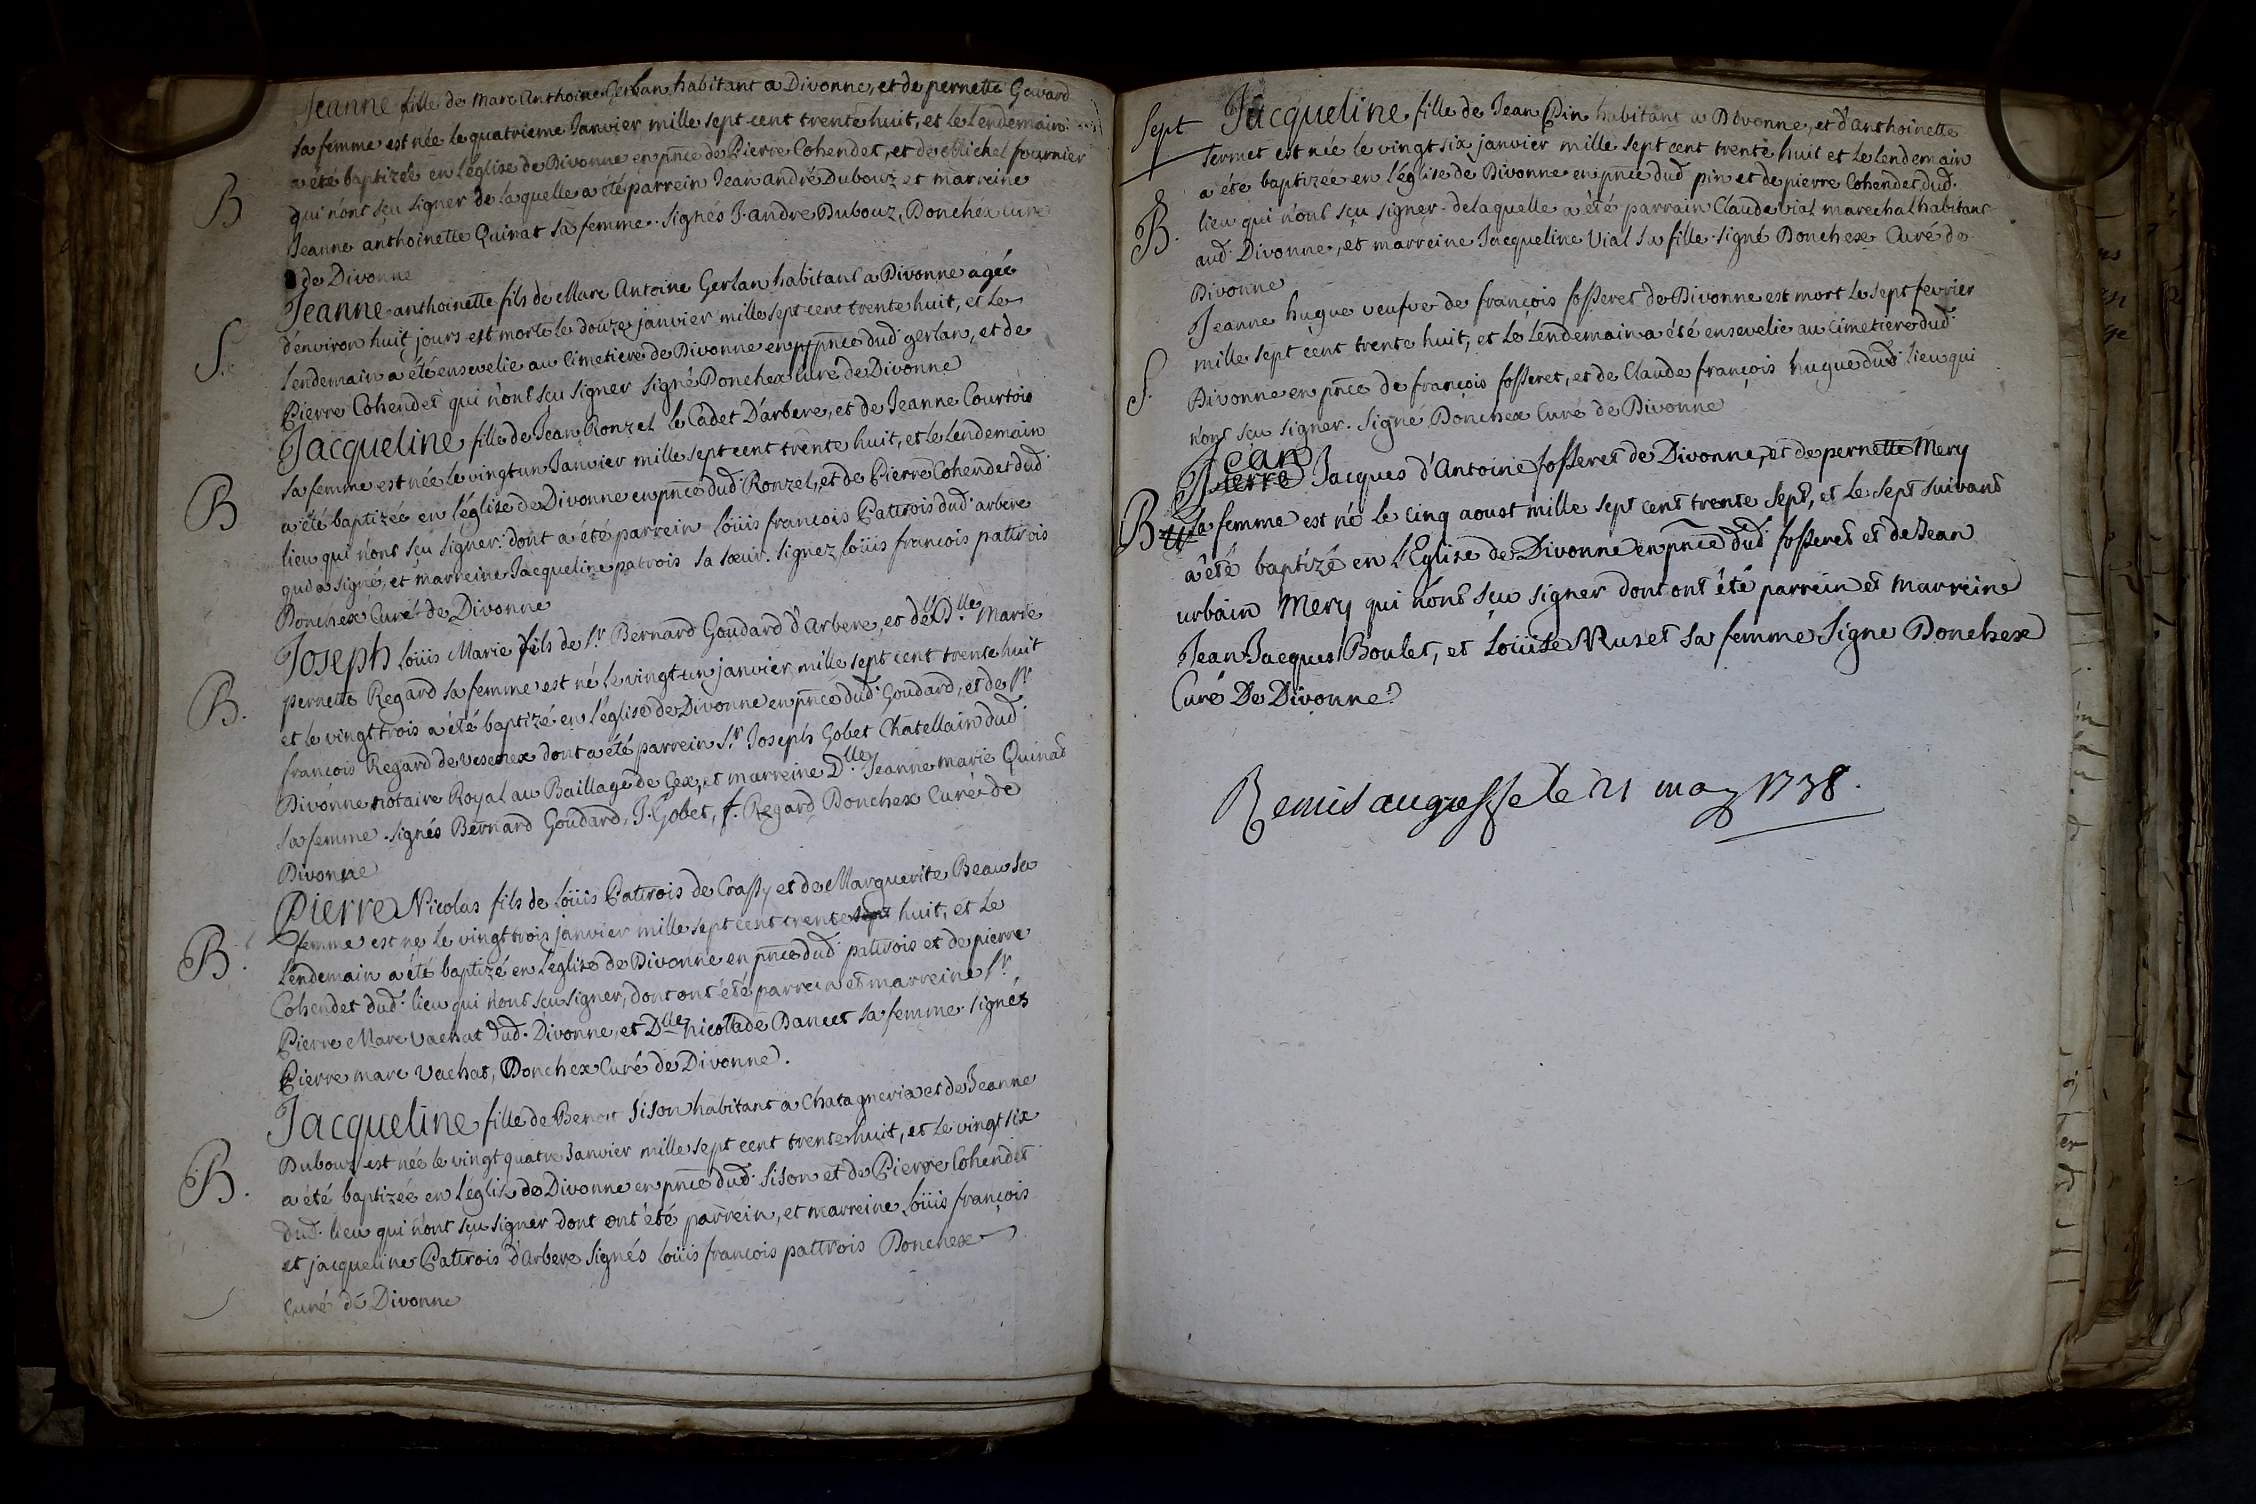 Jeanne fille de Marc Anthoine Gerlan habitant a Divonne, et de pernette Gevard
sa femme est née le quatrieme Janvier mille sept cent trente huit, et le Lendemain
a été baptizée en l'église de Divonne en pnce de Pierre Cohendet, et de Michel fournier
B
qui n'ont sçu signer de laquelle a été parrein Jean andré Dubouz et marreine
Jeanne anthoinette Quinat sa femme. signés J. andre Dubouz, Donchex curé
de Divonne
Jeanne anthoinette fils de Marc Antoine Gerlan habitant a Divonne agée
d'environ huit jours est morte le douze janvier mille sept cent trente huit, et le
S.
Lendemain a été ensevelie au Cimetiere de Divonne en pnce dud. gerlan, et de
Pierre Cohendet qui n'ont sçu signer signé Donchex curé de Divonne
Jacqueline fille de Jean Ronzel le Cadet D'arbere, et de Jeanne Courtois
sa femme est née le vingt un Janvier mille sept cent trente huit, et le Lendemain
B
a été baptizée en l'église de Divonne en pnce dud. Ronzel, et de Pierre Cohendet dud.
lieu qui n'ont sçu signer. dont a été parrein Loüis francois Patrois dud. arbere
qui a signé, et marreine Jacqueline patrois sa soeur. signez Loüis francois patrois
Donchex Curé de Divonne
Joseph Loüis Marie fils de Sr. Bernard Goudard d'Arbere, et de Dlle. Marie
pernette Regard sa femme est né le vingt un janvier mille sept cent trente huit
B.
et le vingt trois a été baptizé en l'église de Divonne en pnce dud. Goudard, et de Sr
francois Regard de Vesenex dont a été parrein Sr. Joseph Gobet Chatellain dud.
Divonne notaire Royal au Baillage de Gex, et marreine Dlle. Jeanne marie Quinat
sa femme. signés Bernard Goudard, J. Gobet, f. Regard Donchex Curé de
Divonne
Pierre Nicolas fils de Loüis Patrois de Crassy et de Marguerite Beau sa
femme est ne le vingt trois janvier mille sept cent trente sept huit, et le
B.
Lendemain a été baptizé en l'église de Divonne en pnce dud. patrois et de pierre
Cohendet dud. lieu qui n'ont sçu signer, dont ont été parrein et marreine Sr.
Pierre Marc Vachat dud. Divonne, et Dlle nicolade Bancet sa femme. signés
Pierre marc Vachat, Donchex Curé de Divonne.
Jacqueline fille de Benoit Sison habitant a Chatagneria et de Jeanne
Dubouz est née le vingt quatre Janvier mille sept cent trente huit, et le vingt six
B.
a été baptizée en l'église de Divonne en pnce dud. Sison et de Pierre Cohendet
dud. lieu qui n'ont sçu signer dont ont été parrein, et marreine Loüis françois
et jacqueline Patrois d'Arbere Signés Loüis françois patrois Donchex
Curé de Divonne
Sept
Jacqueline fille de Jean Pin habitant a Divonne, et d'anthoinette
Termet est née le vingt six janvier mille sept cent trente huit et le Lendemain
a été baptizée en l'église de Divonne en pnce dud. pin et de pierre Cohendet dud.
B.
lieu qui n'ont sçu signer. de laquelle a été parrain Claude vial marechal habitant
aud. Divonne, et marreine Jacqueline Vial sa fille. signé Donchex Curé de
Divonne
Jeanne hugue veufve de françois fosseret de Divonne est mort le sept fevrier
mille sept cent trente huit, et le Lendemain a été ensevelie au Cimetiere dud.
S.
Divonne en pnce de françois fosseret, et de Claude françois hugue dud. lieu qui
n'ont sçu signer. Signé Donchex Curé de Divonne
Jean
Pierre Jacques d'Antoine fosseret de Divonne, et de pernette Mery
B
sa femme est né le cinq aoust mille sept cent trente sept, et le sept suivant
a été baptizé en l'Eglise de Divonne en pnce dud. fosseret et de Jean
urbain Mery qui n'ont sçu signer dont ont été parrein et marreine
Jean Jacques Boulet, et Loüise Ruset sa femme Signe Donchex
Curé De Divonne
Remis au greffe le 21 may 1738.